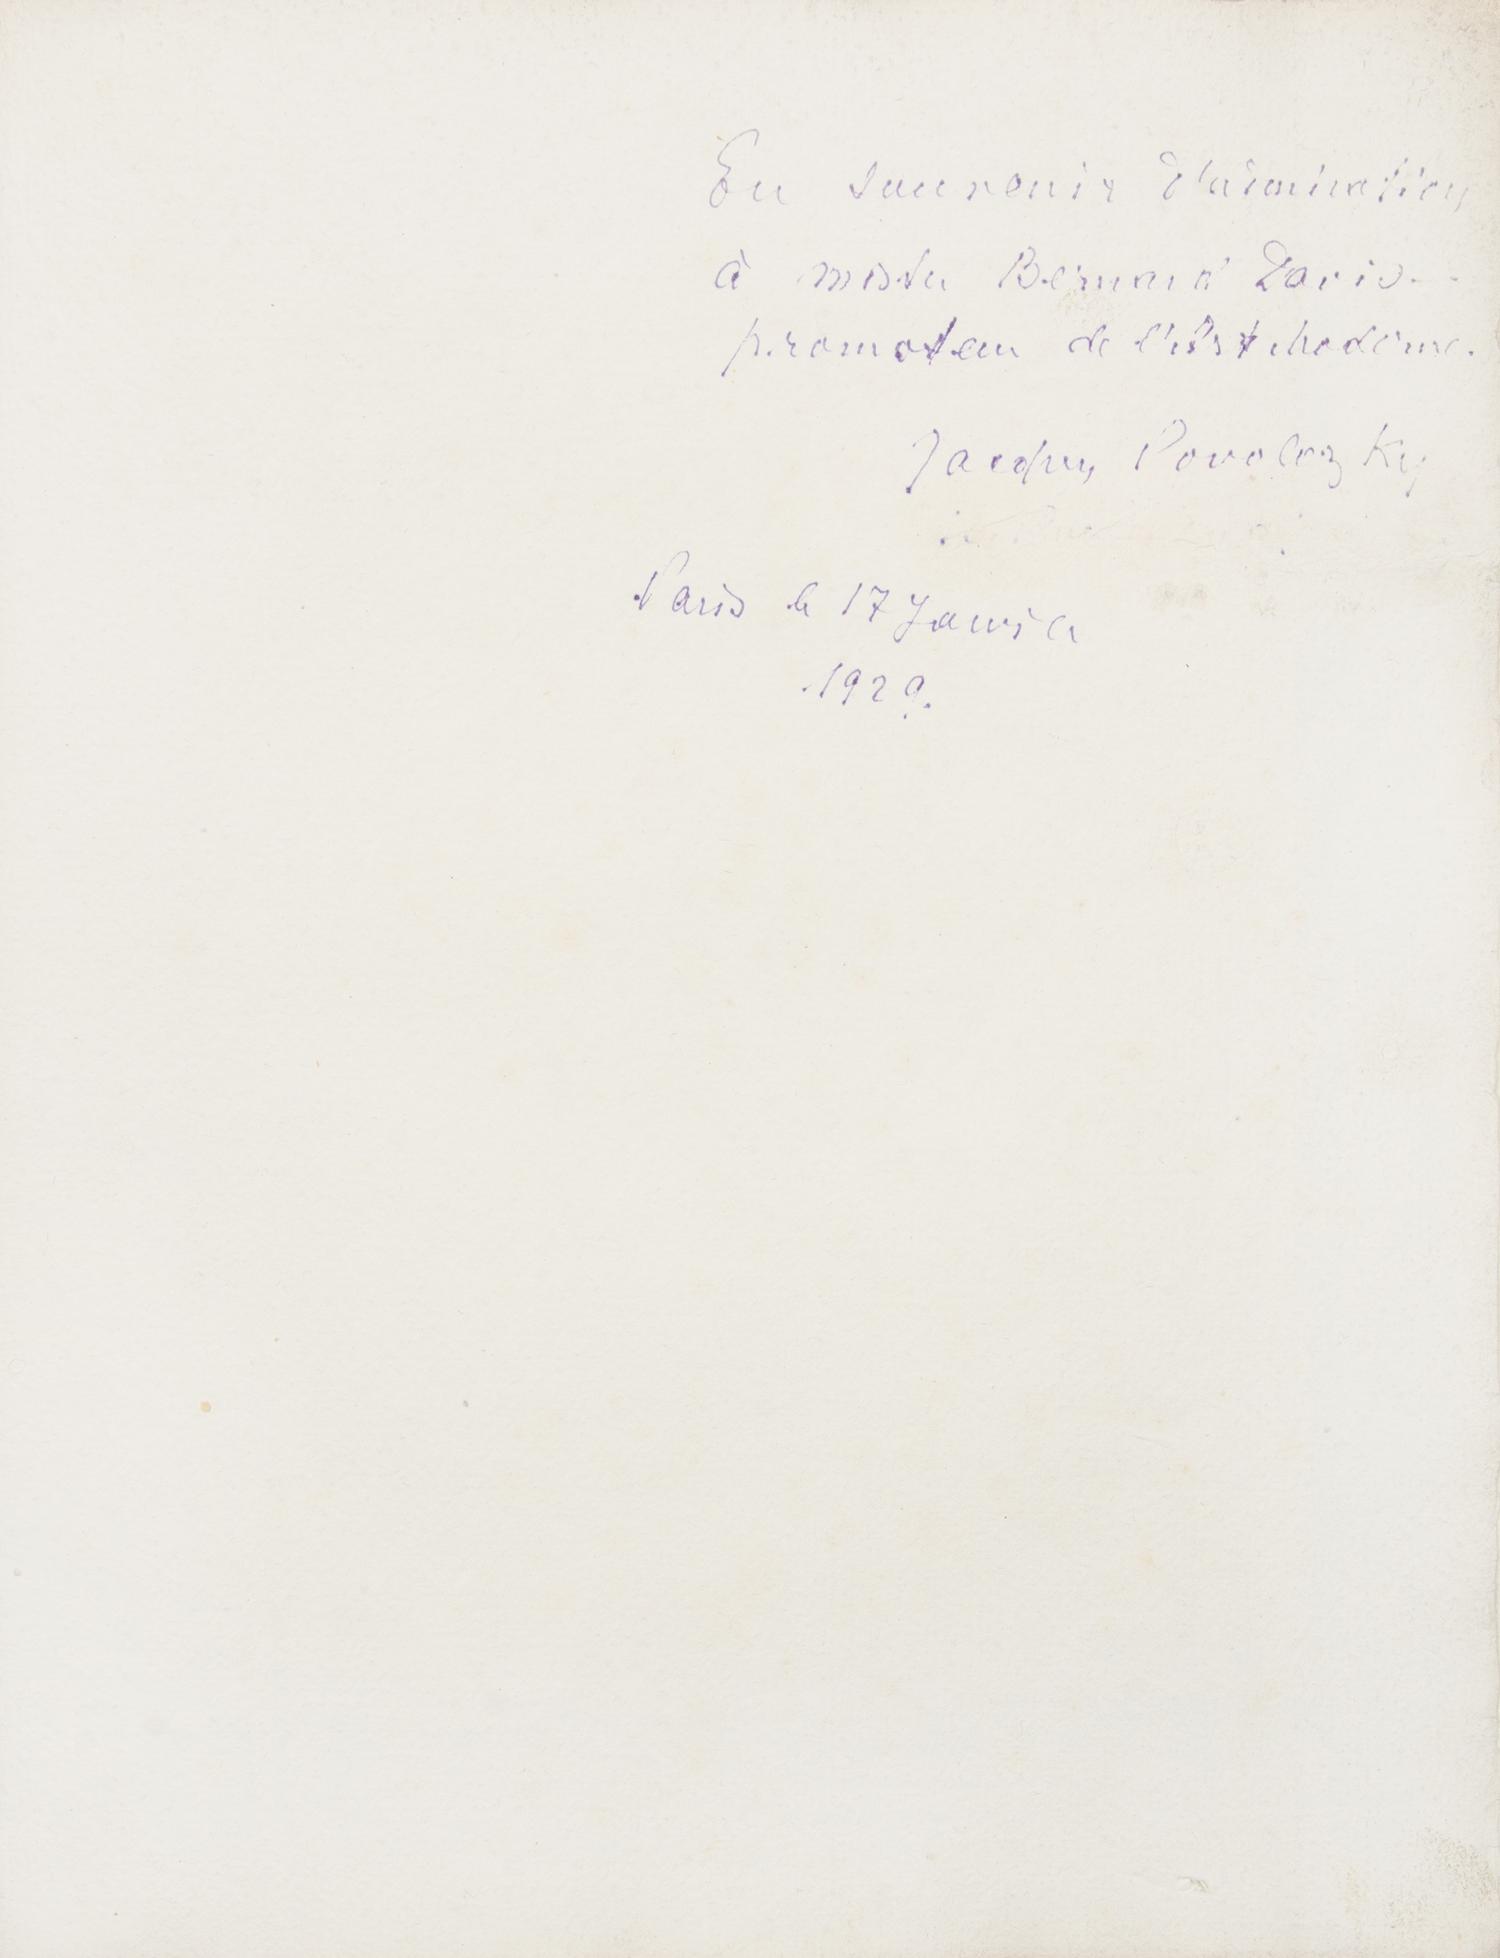 En souvenir d'admiration
à mister Bernard Davis
promoteur de l'Art Moderne.
Jacques Povolozky
Paris le 17 Janvier
1929.